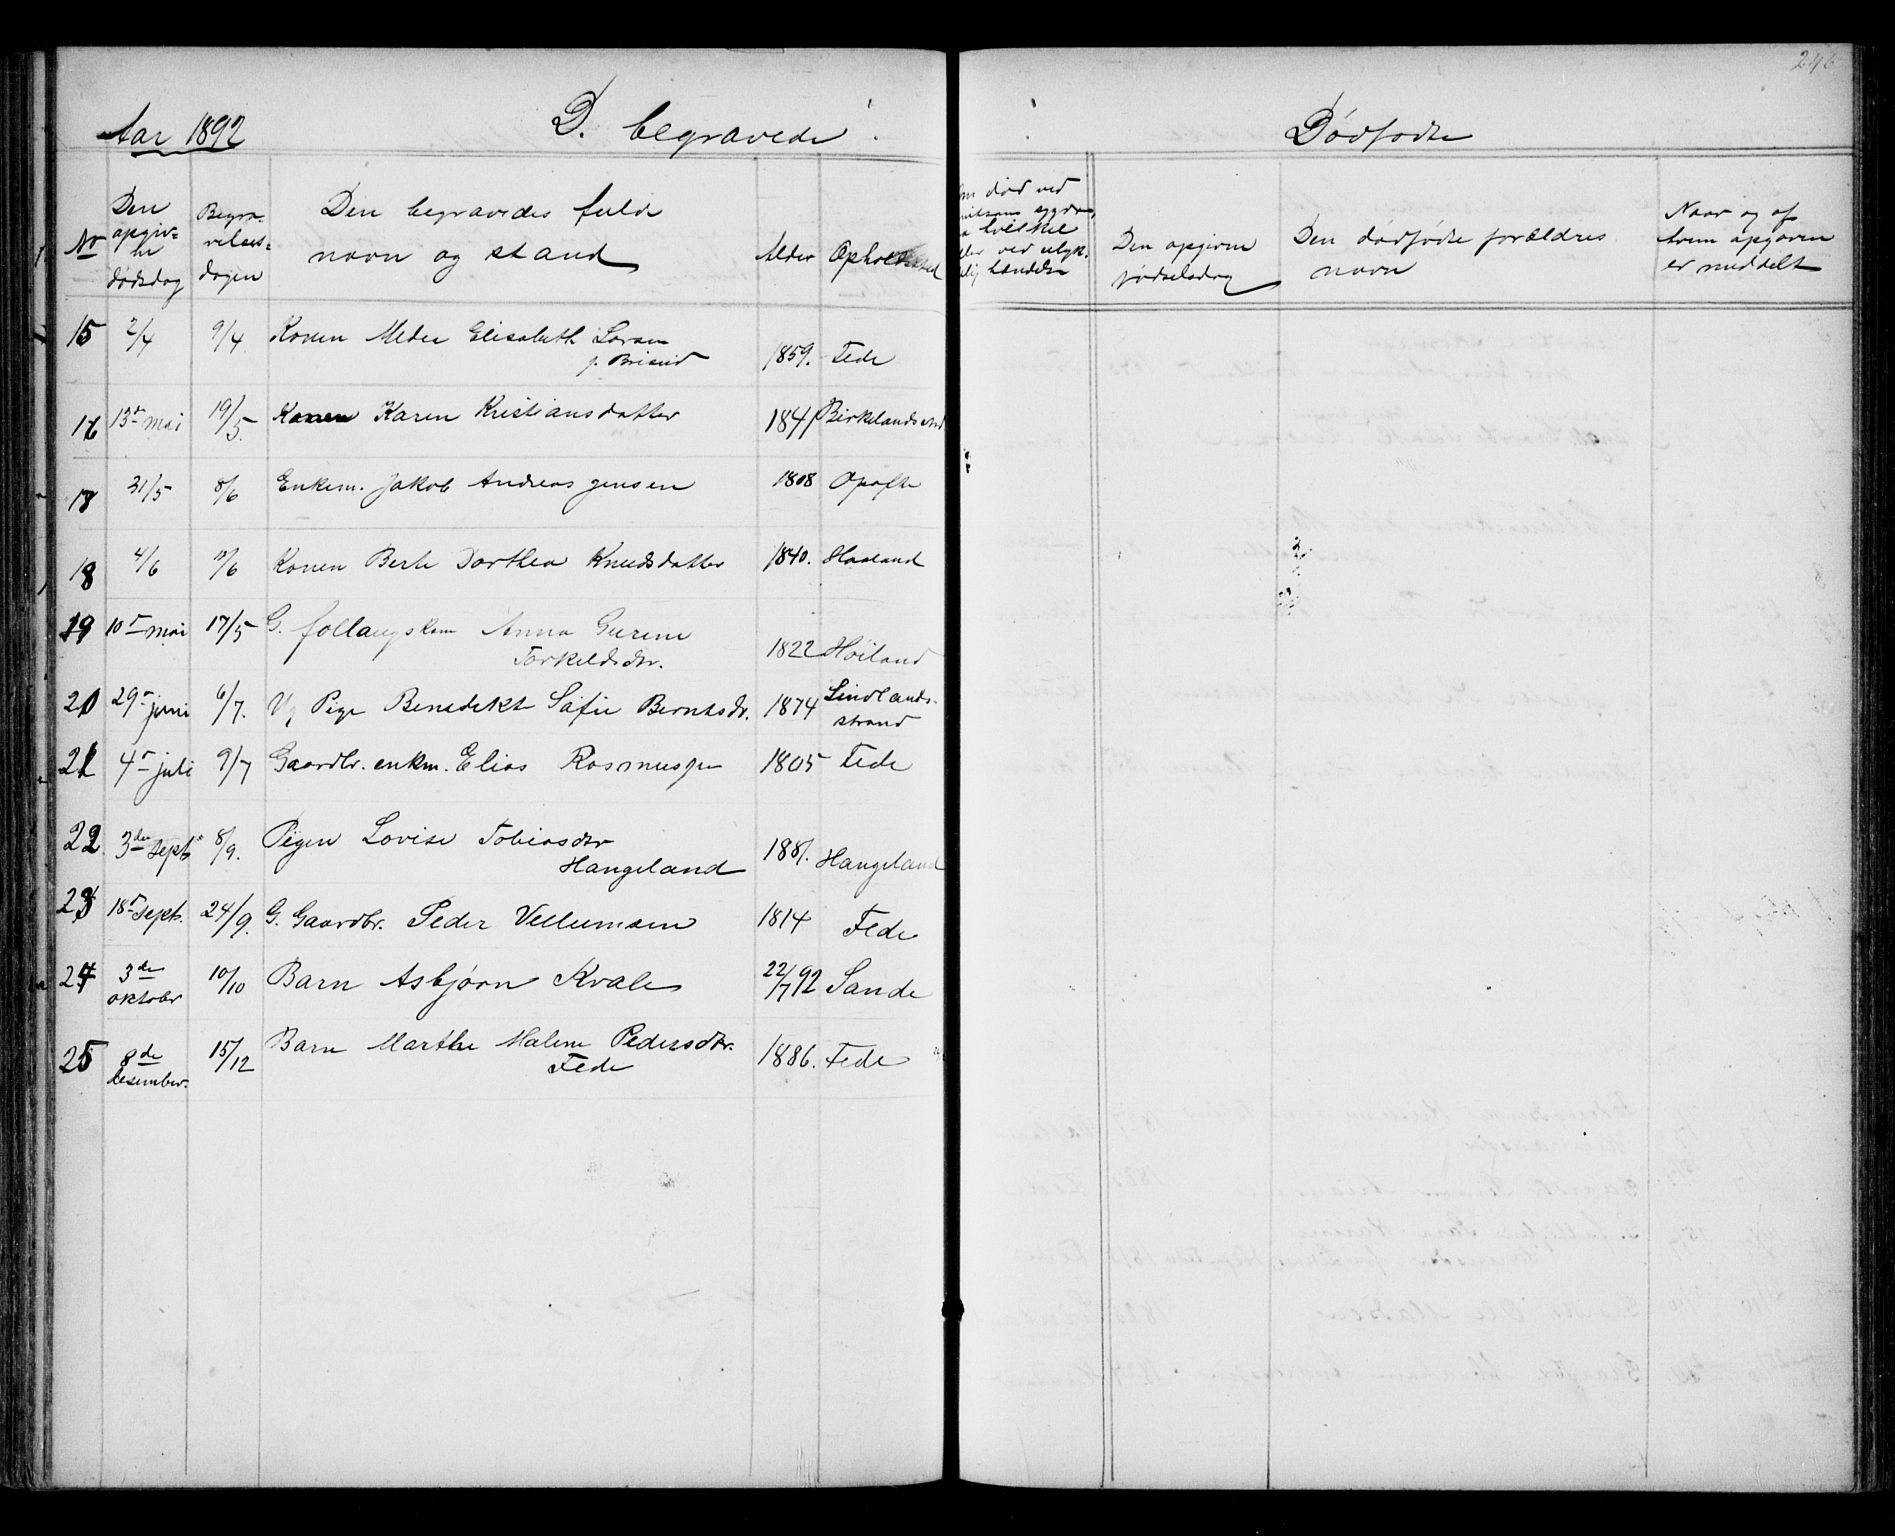 246
Aar 1892
D. begravede
Dødfødte
No
Den opgiv-
ne
dødsdag
Begra-
velses-
dagen
Den begravedes fulde
navn og stand
Alder
Opholdssted
død ved
hvilken
ved ulyk-
hændelse
Den opgivne
fødselsdag
Den dødfødte forældres
navn
Naar og af
hvem opgaven
er meddelt
15 2/4 9/4 Konen Elisabeth
1859. Fede
16 13de mai 19/5. Konen Karen Kristiansdatter 1841 Birkelands
17 31/5 8/6 Enkem. Jakob Andreas Jensen 1808 Opofte
18 4/6 /6 Konen Berte Dorthea Knudsdatter 1840. Haaland
19 10de mai 17/5 G. Anna Gurine
Torkeldsdtr. 1822 Høiland
20 29de juni 6/7. Ug Pige Benedekte Sofie Berntsdr. 1874 Lindlands-
strand
21 4de juli 9/7 Gaardbr. enkm. Elias Rasmussen 1805 Fede
22 3die sept. 8/9. Pigen Lovise Tobiasdtr
Hangeland 1881. Hangeland
23 18de sept. 24/9. G. Gaardbr. Peder Vellumsen 1814 Fede
24 3de
oktober 10/10 Barn Asbjørn Kvale 22/7 92 Sande
25 8de
desember. 15/12 Barn Marthe Malene Pedersdtr.
Fede 1886. Fede